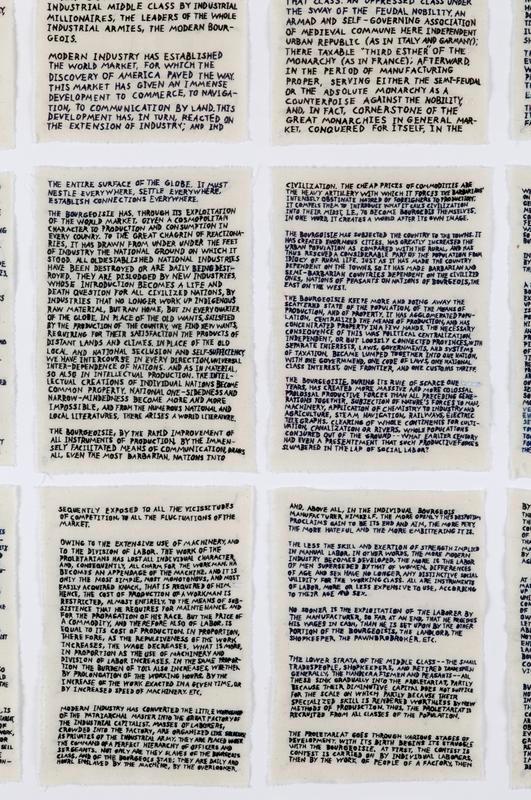 INDUSTRIAL MIDDLE CLASS BY INDUSTRIAL
MILLIONAIRES, THE LEADERS OF THE WHOLE
INDUSTRIAL ARMIES, THE MODERN BOUR-
GEOIS.
MODERN INDUSTRY HAS ESTABLISHED
THE WORLD MARKET, FOR WHICH THE
DISCOVERY OF AMERICA PAVED THE WAY.
THIS MARKET HAS GIVEN AN IMMENSE
DEVELOPMENT TO COMMERCE, TO NAVIGA-
TION, TO COMMUNICATION BY LAND. THIS
DEVELOPMENT HAS, IN TURN, REACTED ON
THE EXTENSION OF INDUSTRY; AND IND
THAT CLASS. AN OPPRESSED CLASS UNDER
THE SWAY OF THE FEUDAL NOBILITY, AN
ARMAD AND SELF-GOVERNING ASSOCIATION
OF MEDIEVAL COMMUNE HERE INDEPENDENT
URBAN REPUBLIC (AS IN ITALY AND GARMANY);
THERE TAXABLE "THIRD ESTATE" OF THE
MONARCHY (AS IN FRANCE); AFTERWARD,
IN THE PERIOD OF MANUFACTURING
PROPER, SERVING EITHER THE SEMI-FEUDAL
OR THE ABSOLUTE MONARCHY AS A
COUNTERPOISE AGAINST THE NOBILITY,
AND, IN FACT, CORNERSTONE OF THE
GREAT MONARCHIES IN GENERAL MAR-
KET, CONQUERED FOR ITSELF, IN THE
THE ENTIRE SURFACE OF THE GLOBE. IT MUST
NESTLE EVERYWHERE, SETTLE EVERYWHERE,
ESTABLISH CONNECTIONS EVERYWHERE.
THE BOURGEOISIE HAS, THROUGH ITS EXPLOITATION
OF THE WORLD MARKET, GIVEN A COSMOPOLITAN
CHARACTER TO PRODUCTION AND CONSUMPTION IN
EVERY COUNTRY. TO THE GREAT CHAGRIN OF REACTIONA-
RIES, IT HAS DRAWN FROM UNDER UNDER THE FEET
OF INDUSTRY THE NATIONAL GROUND ON WHICH IT
STOOD. ALL OLDESTABLISHED NATIONAL INDUSTRIES
HAVE BEEN DESTROYED OR ARE DAILY BEING DEST-
ROYED. THEY ARE DISLODGED BY NEW INDUSTRIES,
WHOSE INTRODUCTION BECOMES A LIFE AND
DEATH QUESTION FOR ALL CIVILIZED NATIONS, BY
INDUSTRIES THAT NO LONGER WORK UP INDIGENOUS
RAW MATERIAL, BUT RAW HOME, BUT IN EVERY QUARTER
OF THE GLOBE. IN PLACE OF THE OLD WANTS, SATISFIED
BY THE PRODUCTION OF THE COUNTRY, WE FIND NEW WANTS,
REQUIRING FOR THEIR SATISFACTION THE PRODUCTS OF
DISTANT LANDS AND CLIMATES. IN PLACE OF THE OLD
LOCAL AND NATIONAL SECLUSION AND SELF-SUFFICIENCY
WE HAVE INTERCOURSE IN EVERY DIRECTION, UNIVERSAL
INTER-DEPENDENCE OF NATIONS. AND AS IN MATERIAL,
SO ALSO IN INTELLECTUAL PRODUCTION. THE INTEL-
LECTUAL CREATIONS OF INDIVIDUAL NATIONS BECOME
COMMON PROPERTY. NATIONAL ONE-SIDEDNESS AND
NARROW-MINDEDNESS BECOME MORE AND MORE
IMPOSSIBLE, AND FROM THE NUMEROUS NATIONAL AND
LOCAL LITERATURES, THERE ARISES A WORLD LITERATURE.
THE BOURGEOISIE, BY THE RAPID IMPROVEMENT OF
ALL INSTRUMENTS OF PRODUCTION, BY THE IMMEN-
SELY FACILITATED MEANS OF COMMUNICATION, DRAWS
ALL, EVEN THE MOST BARBARIAN, NATIONS INTO
CIVILIZATION. THE CHEAP PRICES OF COMMODITIES ARE
THE HEAVY ARTILLERY WITH WHICH IT FORCES THE BARBARIANS
INTENSELY OBSTINATE HATRED OF FOREIGNERS TO
IT COMPELS THEM TO INTRODUCE WHAT IT CALLS CIVILIZATION
INTO THEIR MIDST, I.E., TO BECOME BOURGEOIS THEMSELVES,
IN ONE WORD, IT CREATES A WORLD AFTER ITS OWN IMAGE.
THE BOURGEOISIE HAS SUBJECTED THE COUNTRY TO THE TOWNS. IT
HAS CREATED ENORMOUS CITIES, HAS GREATLY INCREASED THE
URBAN POPULATION AS COMPARED WITH THE RURAL, AND HAS
THUS RESCUED A CONSIDERABLE PART OF THE POPULATION FROM
IDIOCY OF RURAL LIFE. JUST AS IT HAS MADE THE COUNTRY
DEPENDENT ON THE TOWNS, SO IT HAS MADE BARBARIAN AND
SEMI-BARBARIAN COUNTRIES DEPENDENT ON THE CIVILIZED
ONES, NATIONS OF PEASANTS ON NATIONS OF BOURGEOIS, THE
EAST ON THE WEST.
THE BOURGEOISIE KEEPS MORE AND DOING AWAY THE
SCATTERED STATE OF THE POPULATION, OF THE MEANS OF
PRODUCTION, AND OF PROPERTY. IT HAS AGGLOMERATED POPU-
LATION, CENTRALIZED THE MEANS OF PRODUCTION, AND HAS
CONCENTRATED PROPERTY IN A FEW HANDS. THE NECESSARY
CONSEQUENCE OF THIS WAS POLITICAL CENTRALIZATION.
INDEPENDENT, OR BUT LOOSELY CONNECTED PROVINCES, WITH
SEPARATE INTERESTS, LAWS, GOVERNMENTS, AND SYSTEMS
OF TAXATION, BECAME LUMPED TOGETHER INTO ONE NATION,
WITH ONE GOVERNMENT, ONE CODE OF LAWS, ONE NATIONAL
CLASS INTEREST, ONE FRONTIER, AND ONE CUSTOMS TARIFF.
THE BOURGEOISIE, DURING ITS RULE OF SCARCE ONE
YEARS, HAS CREATED MORE MASSIVE AND MORE COLOSSAL
PRODUCTIVE FORCES THAN ALL PRECEDING GENE-
RATIONS TOGETHER. SUBJECTION OF NATURE'S FORCES TO MAN,
MACHINERY, APPLICATION OF CHEMISTRY TO INDUSTRY AND
AGRICULTURE, STEAM NAVIGATION, RAILWAYS, ELECTRIC
TELEGRAPHS, CLEARING OF WHOLE CONTINENTS FOR CULTI-
VATION, CANALIZATION OR RIVERS, WHOLE POPULATIONS
CONJURED OUT OF THE GROUND -- WHAT EARLIER CENTURY
HAD EVEN A PRESENTIMENT THAT SUCH PRODUCTIVE FORCES
SLUMBERED IN THE LAP OF SOCIAL LABOR?
SEQUENTLY EXPOSED TO ALL THE VICISSITUDES
OF COMPETITION, TO ALL THE FLUCTUATIONS OF THE
MARKET.
OWING TO THE EXTENSIVE USE OF MACHINERY, AND
TO THE DIVISION OF LABOR, THE WORK OF THE
PROLETARIANS HAS LOST ALL INDIVIDUAL CHARACTER,
AND, CONSEQUENTLY, ALL CHARM FOR THE WORKMAN. HE
BECOMES AN APPENDAGE OF THE MACHINE, AND IT IS
ONLY THE MOST SIMPLE, MOST MONOTONOUS, AND MOST
EASILY ACQUIRED KNACK, THAT IS REQUIRED OF HIM.
HENCE, THE COST OF PRODUCTION OF A WORKMAN IS
RESTRICTED, ALMOST ENTIRELY, TO THE MEANS OF SUB-
SISTENCE THAT HE REQUIRES FOR MAINTENANCE, AND
FOR THE PROPAGATION OF HIS RACE. BUT THE PRICE OF
A COMMODITY, AND THEREFORE ALSO OF LABOR, IS
EQUAL TO ITS COST OF PRODUCTION. IN PROPORTION,
THERE FORE, AS THE REPULSIVENESS OF THE WORK
INCREASES, THE WAGE DECREASES. WHAT IS MORE,
IN PROPORTION AS THE USE OF MACHINERY AND
DIVISION OF LABOR INCREASES, IN THE SAME PROPOR-
TION THE BURDEN OF TOIL ALSO INCREASES, WHETHER
BY PROLONGATION OF THE WORKING HOURS, BY THE
INCREASE OF THE WORK EXACTED IN A GIVEN TIME, OR
BY INCREASED SPEED OF MACHINERY, ETC.
MODERN INDUSTRY HAS CONVERTED THE LITTLE WORKSHOP
OF THE PATRIARCHAL MASTER INTO THE GREAT FACTORY OF
THE INDUSTRIAL CAPITALIST. MASSES OF LABORERS,
CROWDED INTO THE FACTORY, ARE ORGANIZED LIKE SOLDIERS.
AS PRIVATES OF THE INDUSTRIAL ARMY, THEY ARE PLACED UNDER
THE COMMAND OF A PERFECT HIERARCHY OF OFFICERS AND
SERGEANTS. NOT ONLY ARE THEY SLAVES OF THE BOURGEOIS
CLASS, AND OF THE BOURGEOIS STATE; THEY ARE DAILY AND
HOURLY ENSLAVED BY THE MACHINE, BY THE OVERLOOKER,
AND, ABOVE ALL, IN THE INDIVIDUAL BOURGEOIS
MANUFACTURER HIMSELF. THE MORE OPENLY THIS DESPOTISM
PROCLAIMS GAIN TO BE ITS END AND AIM, THE MORE PETTY
THE MORE HATEFUL AND THE MORE EMBITTERING IT IS.
THE LESS THE SKILL AND EXERTION OF STRENGTH IMPLIED
IN MANUAL LABOR, IN OTHER WORDS, THE MORE MODERN
INDUSTRY BECOMES DEVELOPED, THE MORE IS THE LABOR
OF MEN SUPERSEDED BY THAT OF WOMEN. DIFFERENCES
OF AGE AND SEX HAVE NO LONGER ANY DISTINCTIVE SOCIAL
VALIDITY FOR THE WORKING CLASS. ALL ARE INSTRUMENTS
OF LABOR, MORE OR LESS EXPENSIVE TO USE, ACCORDING
TO THEIR AGE AND SEX.
NO SOONER IS THE EXPLOITATION OF THE LABORER BY
THE MANUFACTURER, SO FAR AT AN END, THAT HE RECEIVES
HIS WAGES IN CASH, THAN HE IS SET UPON BY THE OTHER
PORTION OF THE BOURGEOISIE, THE LANDLORD, THE
SHOPKEEPER, THE PAWNBROBROKER, ETC.
THE LOWER STRATA OF THE MIDDLE CLASS -- THE SMALL
TRADESPEOPLE, SHOPKEEPERS, AND RETIRED TRADESMEN
GENERALLY, THE HANDICRAFTSMEN AND PEASANTS -- ALL
THESE SINK GRADUALLY INTO THE PROLETARIAT, PARTLY
BECAUSE THEIR DIMINUTIVE CAPITAL DOES NOT SUFFICE
FOR THE SCALE ON WHICH PARTLY BECAUSE THEIR
SPECIALIZED SKILL IS RENDERED WORTHLESS BY NEW
METHODS OF PRODUCTION. THUS, THE PROLETARIAT IS
RECRUITED FROM ALL CLASSES OF THE POPULATION.
THE PROLETARIAT GOES THROUGH VARIOUS STAGES OF
DEVELOPMENT. WITH ITS BIRTH BEGINS ITS STRUGGLE
WITH THE BOURGEOISIE. AT FIRST, THE CONTEST IS
CONTEST IS CARRIED ON BY INDIVIDUAL LABORERS,
THEN BY THE WORK OF PEOPLE OF A FACTORY, THEN